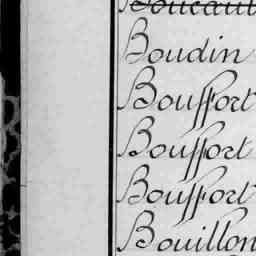 Boucaut
Boudin
Bouffort
Bouffort
Bouffort
Bouillon